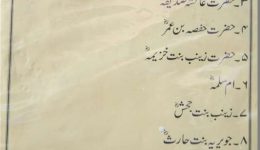 ۳۔ حضرت عائشہ صدیقہؓ
۴۔ حضرت حفصہ بن عمرؓ
۵۔ حضرت زینب بنت خزیمہؓ
۶۔ ام سلمہؓ
۷۔ زینب بنت جحشؓ
۸۔ جویریہ بنت حارثؓ